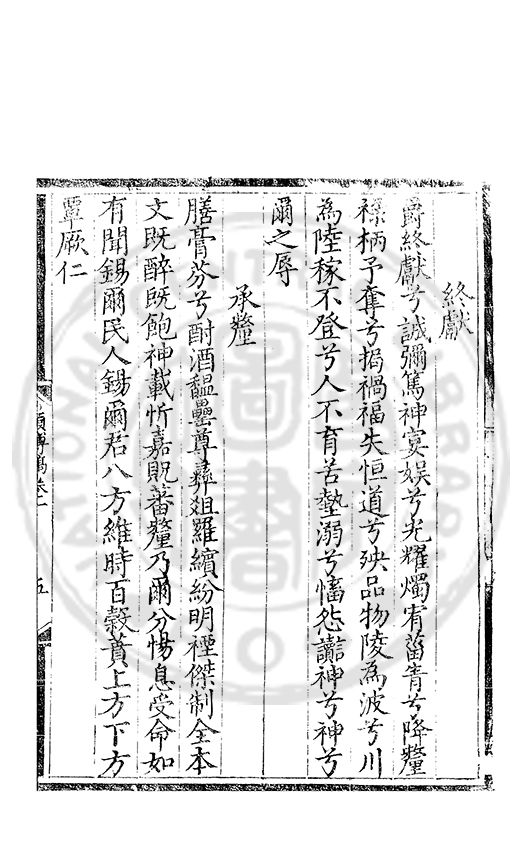 終獻
爵終獻兮誠彌篤神寔娛兮光耀燭宥菑眚兮降釐
祿柄予奪兮揭禍福失恒道兮殃品物陵為波兮川
為陸稼不登兮人不育苦墊溺兮慉怨讟神兮神兮
爾之辱
承釐
膳膏芬兮酎酒醞罍尊彝俎羅繽紛明禋傑制全本
文既醉既飽神載忻嘉貺蕃釐乃爾分惕息受命如
有聞錫爾民人錫爾君八方維時百穀蕡上方下方
覃厥仁
頤博稿卷一
五